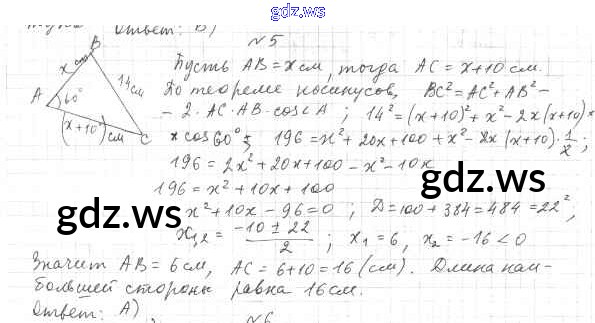 gdz.ws
www.gdz.ws
Ответ: В)
№5
B
x см
14 см
A
60°
(x+10) см
C
Пусть AB = x см, тогда AC = x+10 см.
По теореме косинусов, BC² = AC² + AB² –
– 2·AC·AB·cos∠A ; 14² = (x+10)² + x² – 2x(x+10)×
× cos60° ; 196 = x² + 20x + 100 + x² – 2x(x+10)·1/2 ;
196 = 2x² + 20x + 100 – x² – 10x
196 = x² + 10x + 100
gdz.ws
gdz.ws
x² + 10x – 96 = 0 ; D = 100 + 384 = 484 = 22² ;
x₁,₂ = (–10 ± 22)/2 ; x₁ = 6, x₂ = –16 < 0
Значит AB = 6 см, AC = 6+10 = 16 (см). Длина наи-
большей стороны равна 16 см.
Ответ: А)
№6